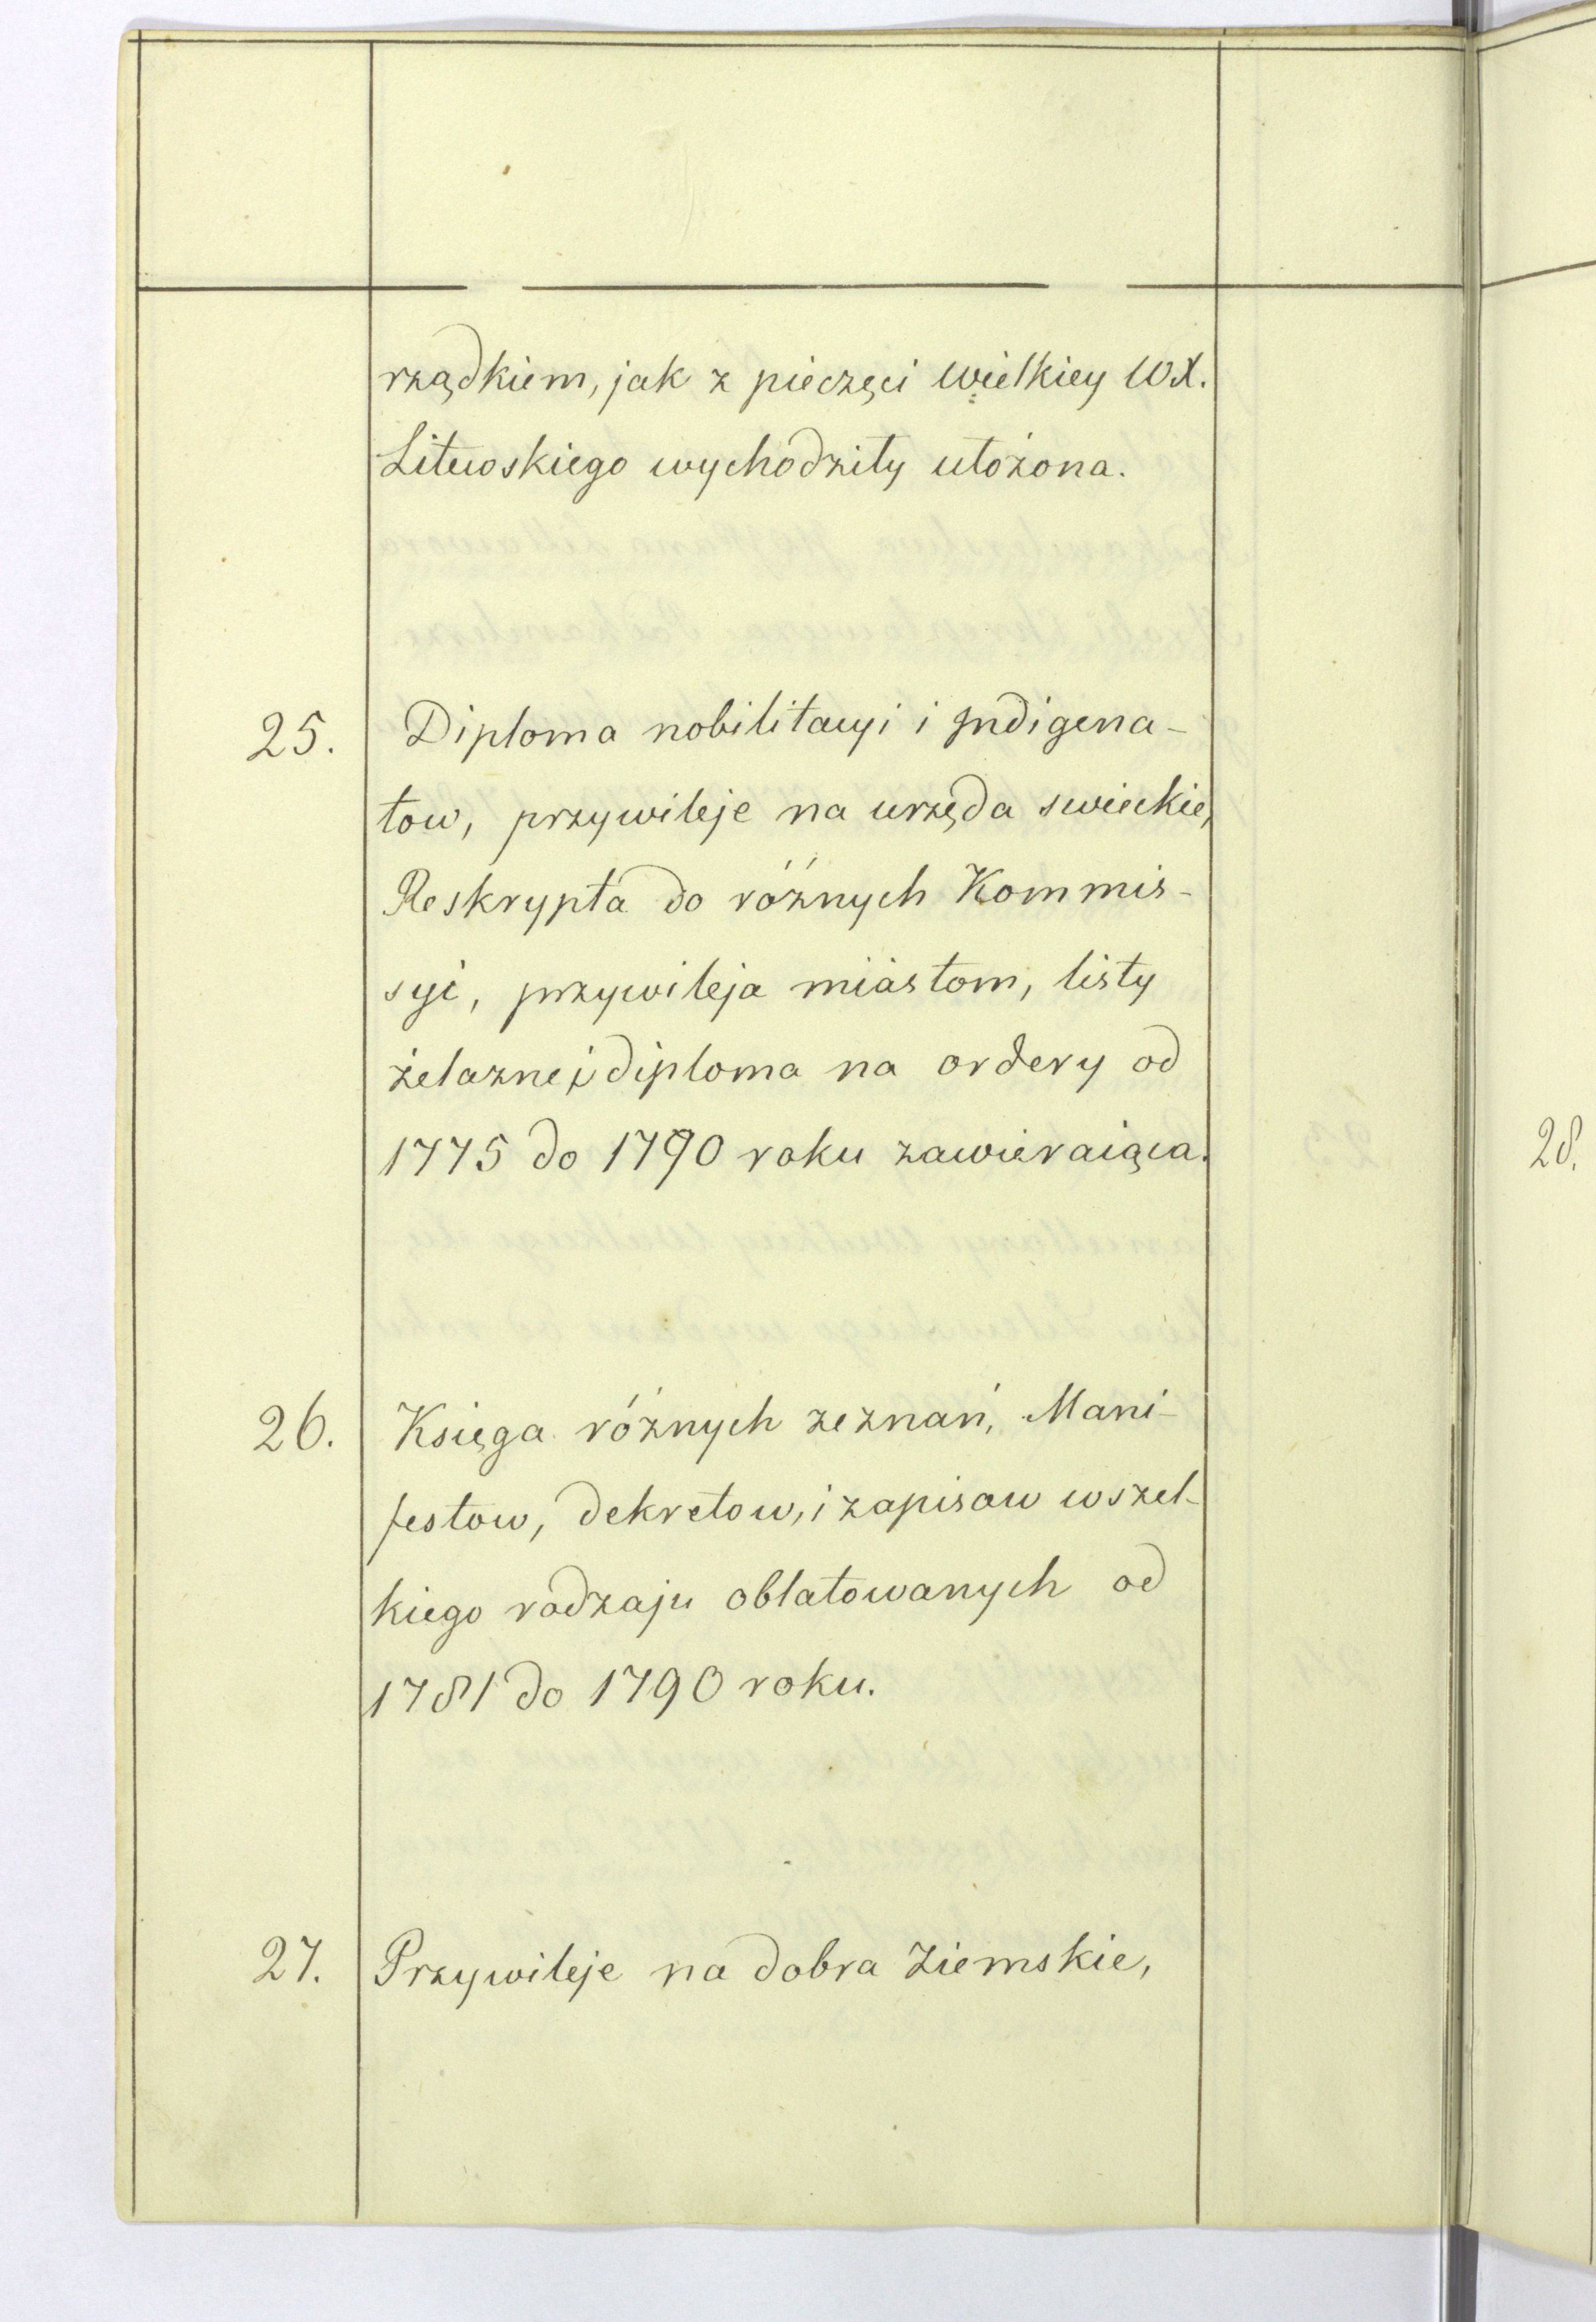 rządkiem, jak z pieczęci Wielkiey W.X.
Litewskiego wychodziły ułożona.
25. Diploma nobilitacyi i Indigena-
tow, przywileje na urzęda swieckie,
Reskrypta do różnych Kommis-
syi, przywileja miastom, listy
żelazne i diploma na ordery od
1775 do 1790 roku zawieraiąca.
26. Księga różnych zeznań, Mani-
festow, dekretow, i zapisow wszel-
kiego rodzaju oblatowanych od
1781 do 1790 roku.
27. Przywileje na dobra Ziemskie,
28.